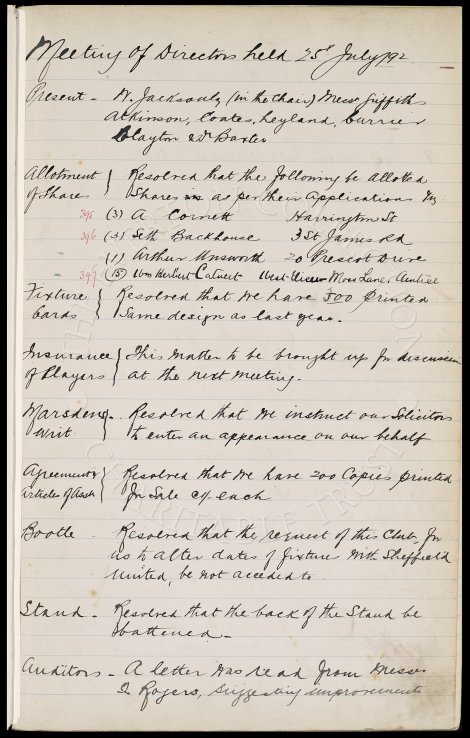 Meeting of Directors held 25th July 92
Present - W. Jackson (in the Chair) Messrs Griffiths
Atkinson, Coates, Leyland, Currier
Clayton & Dr Baxter
Allotment } Resolved that the following be allotted
of Shares } Shares as per their applications viz
395 (3) A Cornett Harrington St
396 (3) Seth Backhouse 3 St James Rd
(1) Arthur Unsworth 20 Prescot Drive
397 (15) Herbert Calvert Moor Lane, Aintree
Fixture } Resolved that we have 500 printed
Cards } Same design as last year.
Insurance } This matter to be brought up for discussion
of Players } at the next meeting.
Marsdens } - Resolved that we instruct our Solicitors
Writ } to enter an appearance on our behalf
Agreement & } Resolved that we have 200 Copies printed
Articles of Assn } for Sale @ each
Bootle - Resolved that the request of this Club, for
us to alter dates of fixture with Sheffield
United, be not acceded to
Stand - Resolved that the back of the Stand be
battened -
Auditors - A letter was read from Messrs
Rogers, suggesting improvements